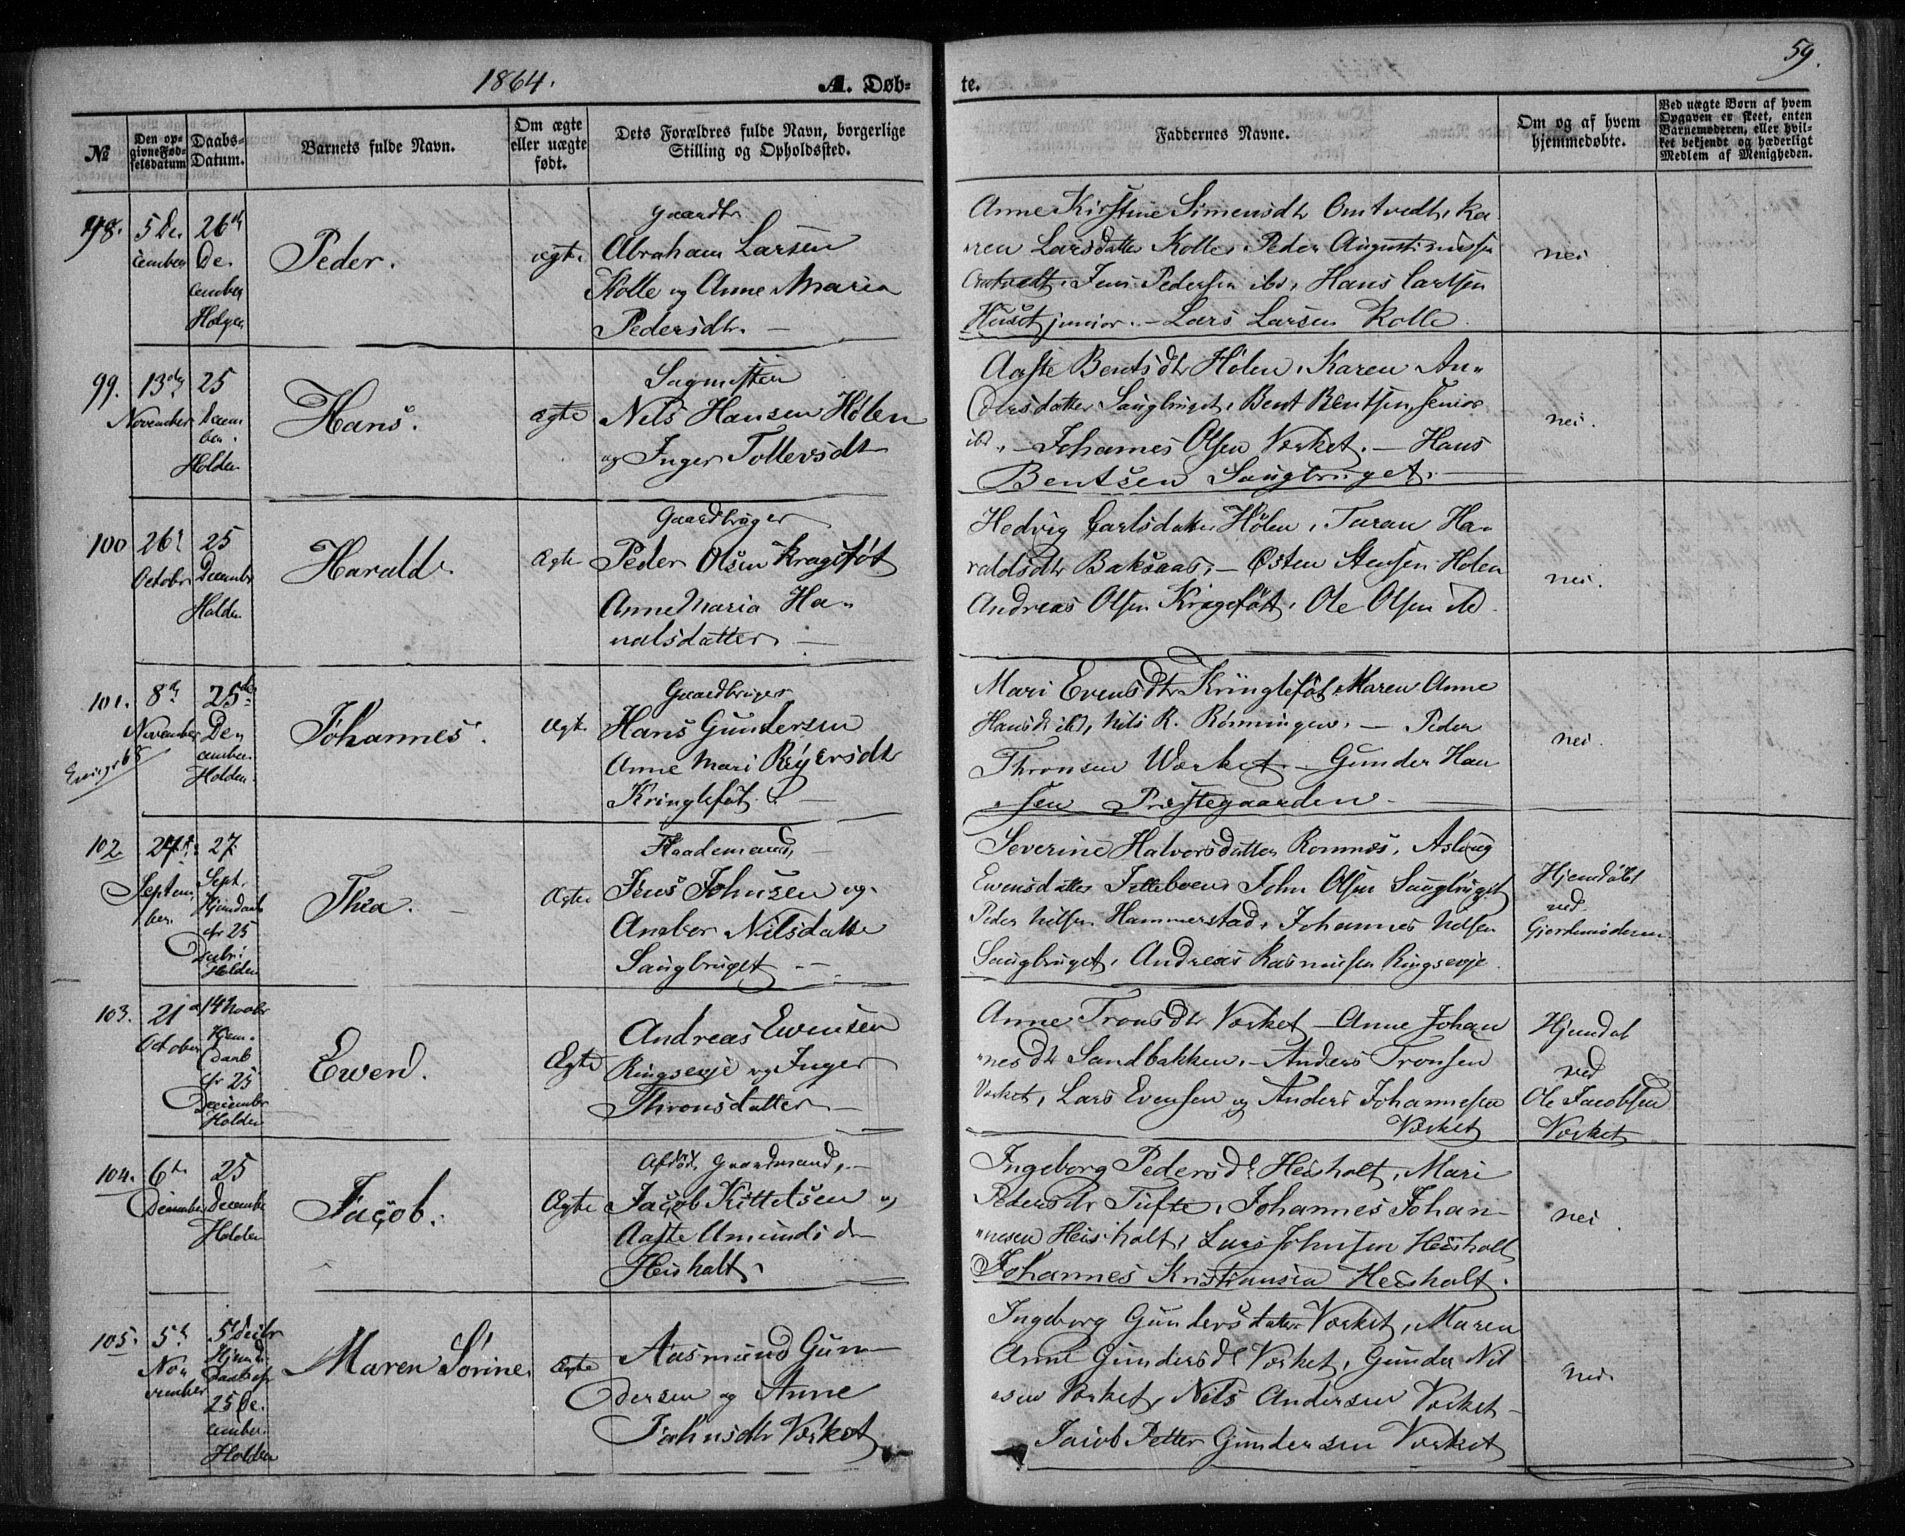 1864.
A. Døb-
te.
59.
№
Den op-
givne Fød-
selsdatum
Daabs-
Datum.
Barnets fulde Navn.
Om ægte
eller uægte
født.
Dets Forældres fulde Navn, borgerlige
Stilling og Opholdssted.
Faddernes Navne.
Om og af hvem
hjemmedøbte.
Ved uægte Børn af hvem
Opgaven er skeet, enten
Barnemoderen, eller hvil-
ket bekjendt og hæderligt
Medlem af Menigheden.
98.
5 De-
cember
26th
De-
cember
Peder.
ægte
Gaardbr
Abraham Larsen
Kolle og Anne Maria
Pedersdtr. —
Anne Kirstine Simensdtr Omtvedt, Ka-
ren Larsdatter Kolle, Peder Augustinussen
Omtvedt, Jens Pedersen ibd, Hans Carlsen
junior. — Lars Larsen Kolle
nei
99.
13de
November
25
Decem-
ber.
Holden
Hans.
ægte
Nils Hansen Hølen
og Inger Tollevsdtr
Aaste Bentsdtr Hølen, Karen An-
dersdatter Saugbruget, Bent Bentsen, Senior
ibd, — Johannes Olsen Værket. — Hans
Bentsen Saugbruget. —
nei.
100
26de
Octobr
25
Decembr
Holden
Harald.
Ægte
Gaardbruger
Peder Olsen Krageføt
Anne Maria Ha-
raldsdatter. —
Hedvig Carlsdatter Hølen, Turan Ha-
raldsdtr Baksaas, — Østen Stensen Holen
Andreas Olsen Krageføt, Ole Olsen ibd
nei.
101.
8de
November
25de
De-
cember.
Holden.
Johannes.
Ægte
Gaardbruger
Hans Gundersen
Anne Mari Reyersdtr
Kringleføt. —
Mari Evensdtr Kringleføt, Maren Anne
Hansdtr ibd, Nils R. Rønningen, — Peder
Thronsen Værket — Gunder Han-
sen Præstegaarden —
nei.
102.
27
Septem-
ber.
27
Sept.
Hjemdaab
cfr 25
Decbr.
Holden
Thea. —
Ægte
Jens Johnsen og
Anebor Nilsdatter
Saugbruget —
Severine Halvorsdatter Romnæs, Aslaug
Evensdatter Tetteboen, John Olsen Saugbruget
Peder Nilsen Hammerstad, Johannes Nilsen
Saugbruget, Andreas Rasmusen Ringsevje
Hjemdøbt
ved
Gjordemoderen
103.
21de
October
14 Novbr
Hjem-
daab
cfr 25
December
Holden
Ewen.
Ægte
Andreas Ewensen
Ringsevje og Inger
Thronsdatter —
Anne Tronsdtr Værket — Anne Johan-
nesdtr Sandbakken, — Anders Tronsen
Værket, Lars Evensen og Anders Johannesen
Værket
Hjemdøbt
ved
Ole Jacobsen
Værket
104.
6te
December
25
December
Holden
Jacob.
Ægte
Afdød. Gaardmand, —
Jacob Kittelsen og
Aaste Amundsd
Heisholt,
Ingeborg Pedersdtr Heisholt, Mari
Pedersdtr Tufte, Johannes Johan-
nesen Heisholt, Lars Johnsen Heisholt
Johannes Kristiansen Heisholt.
nei
105.
5te
No-
vember
5 Decbr
Hjemme-
daab cfr
25 De-
cember.
Holden
Maren Sørine.
Ægte
Aasmund Gun-
dersen og Anne
Johnsdtr Værket
Ingeborg Gundersdatter Værket, Maren
Anne Gundersdtr Værket, Gunder Nil-
sen Værket, Nils Andersen Værket —
Jacob Petter Gundersen Værket
nei.